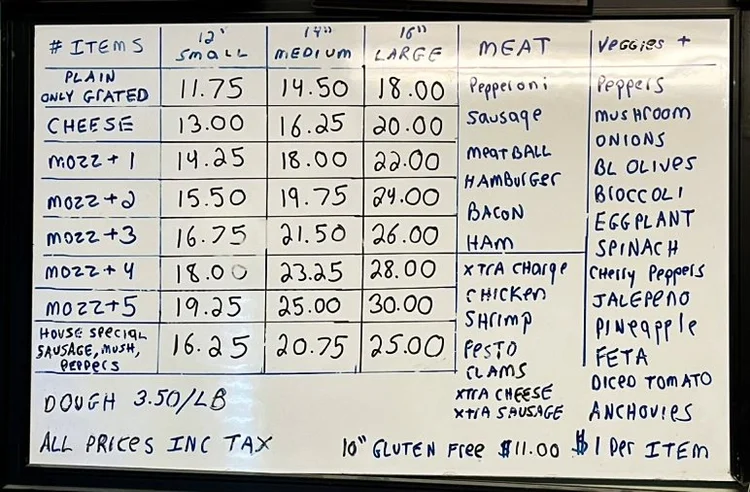 # ITEMS 12" SMALL 14" MEDIUM 16" LARGE
PLAIN ONLY GRATED 11.75 14.50 18.00
CHEESE 13.00 16.25 20.00
MOZZ + 1 14.25 18.00 22.00
MOZZ + 2 15.50 19.75 24.00
MOZZ + 3 16.75 21.50 26.00
MOZZ + 4 18.00 23.25 28.00
MOZZ + 5 19.25 25.00 30.00
HOUSE SPECIAL SAUSAGE, MUSH, PEPPERS 16.25 20.75 25.00
MEAT
Pepperoni
Sausage
MeatBALL
HAMBurger
BACON
HAM
XTRA CHArge
CHICKen
SHrImp
PESTO
CLAMS
XTRA CHEESE
XTRA SAUSAGE
Veggies +
Peppers
MUSHrOOM
ONIONS
BL OLIVES
BrOCCOLI
EGGPLANT
SPINACH
CHerry Peppers
JALEPEÑO
PINeapple
FETA
DICED TOMATO
ANCHOVIES
DOUGH 3.50/LB
ALL PRICES INC TAX
10" GLUTEN Free $11.00 $1 Per ITEM